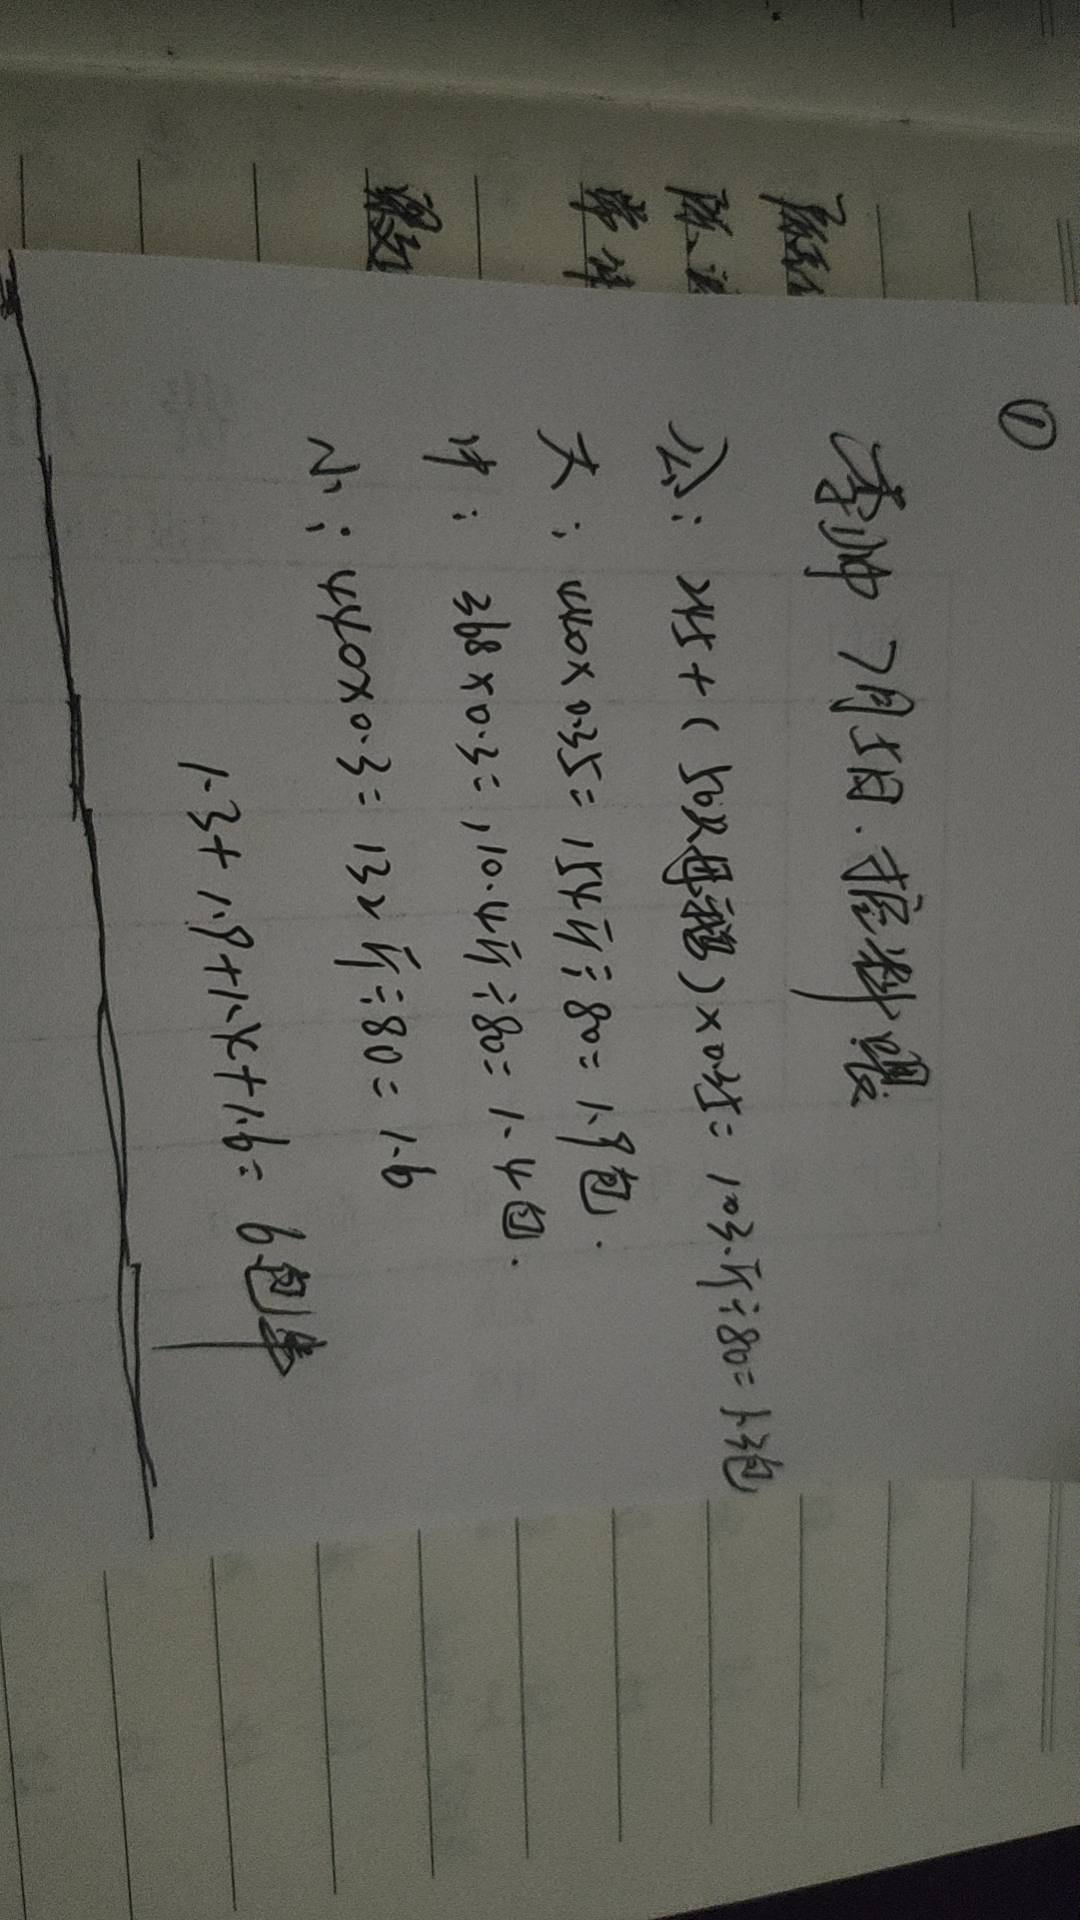 ①
李帅 7月5日.推料量
公: 245+(50只母鸡)×0.35=103.斤÷80=1.3包
大: 440×0.35=154斤÷80=1.9包.
中: 368×0.3=110.4斤÷80=1.4包.
小: 440×0.3=132斤÷80=1.6
1.3+1.9+1.4+1.6=6包